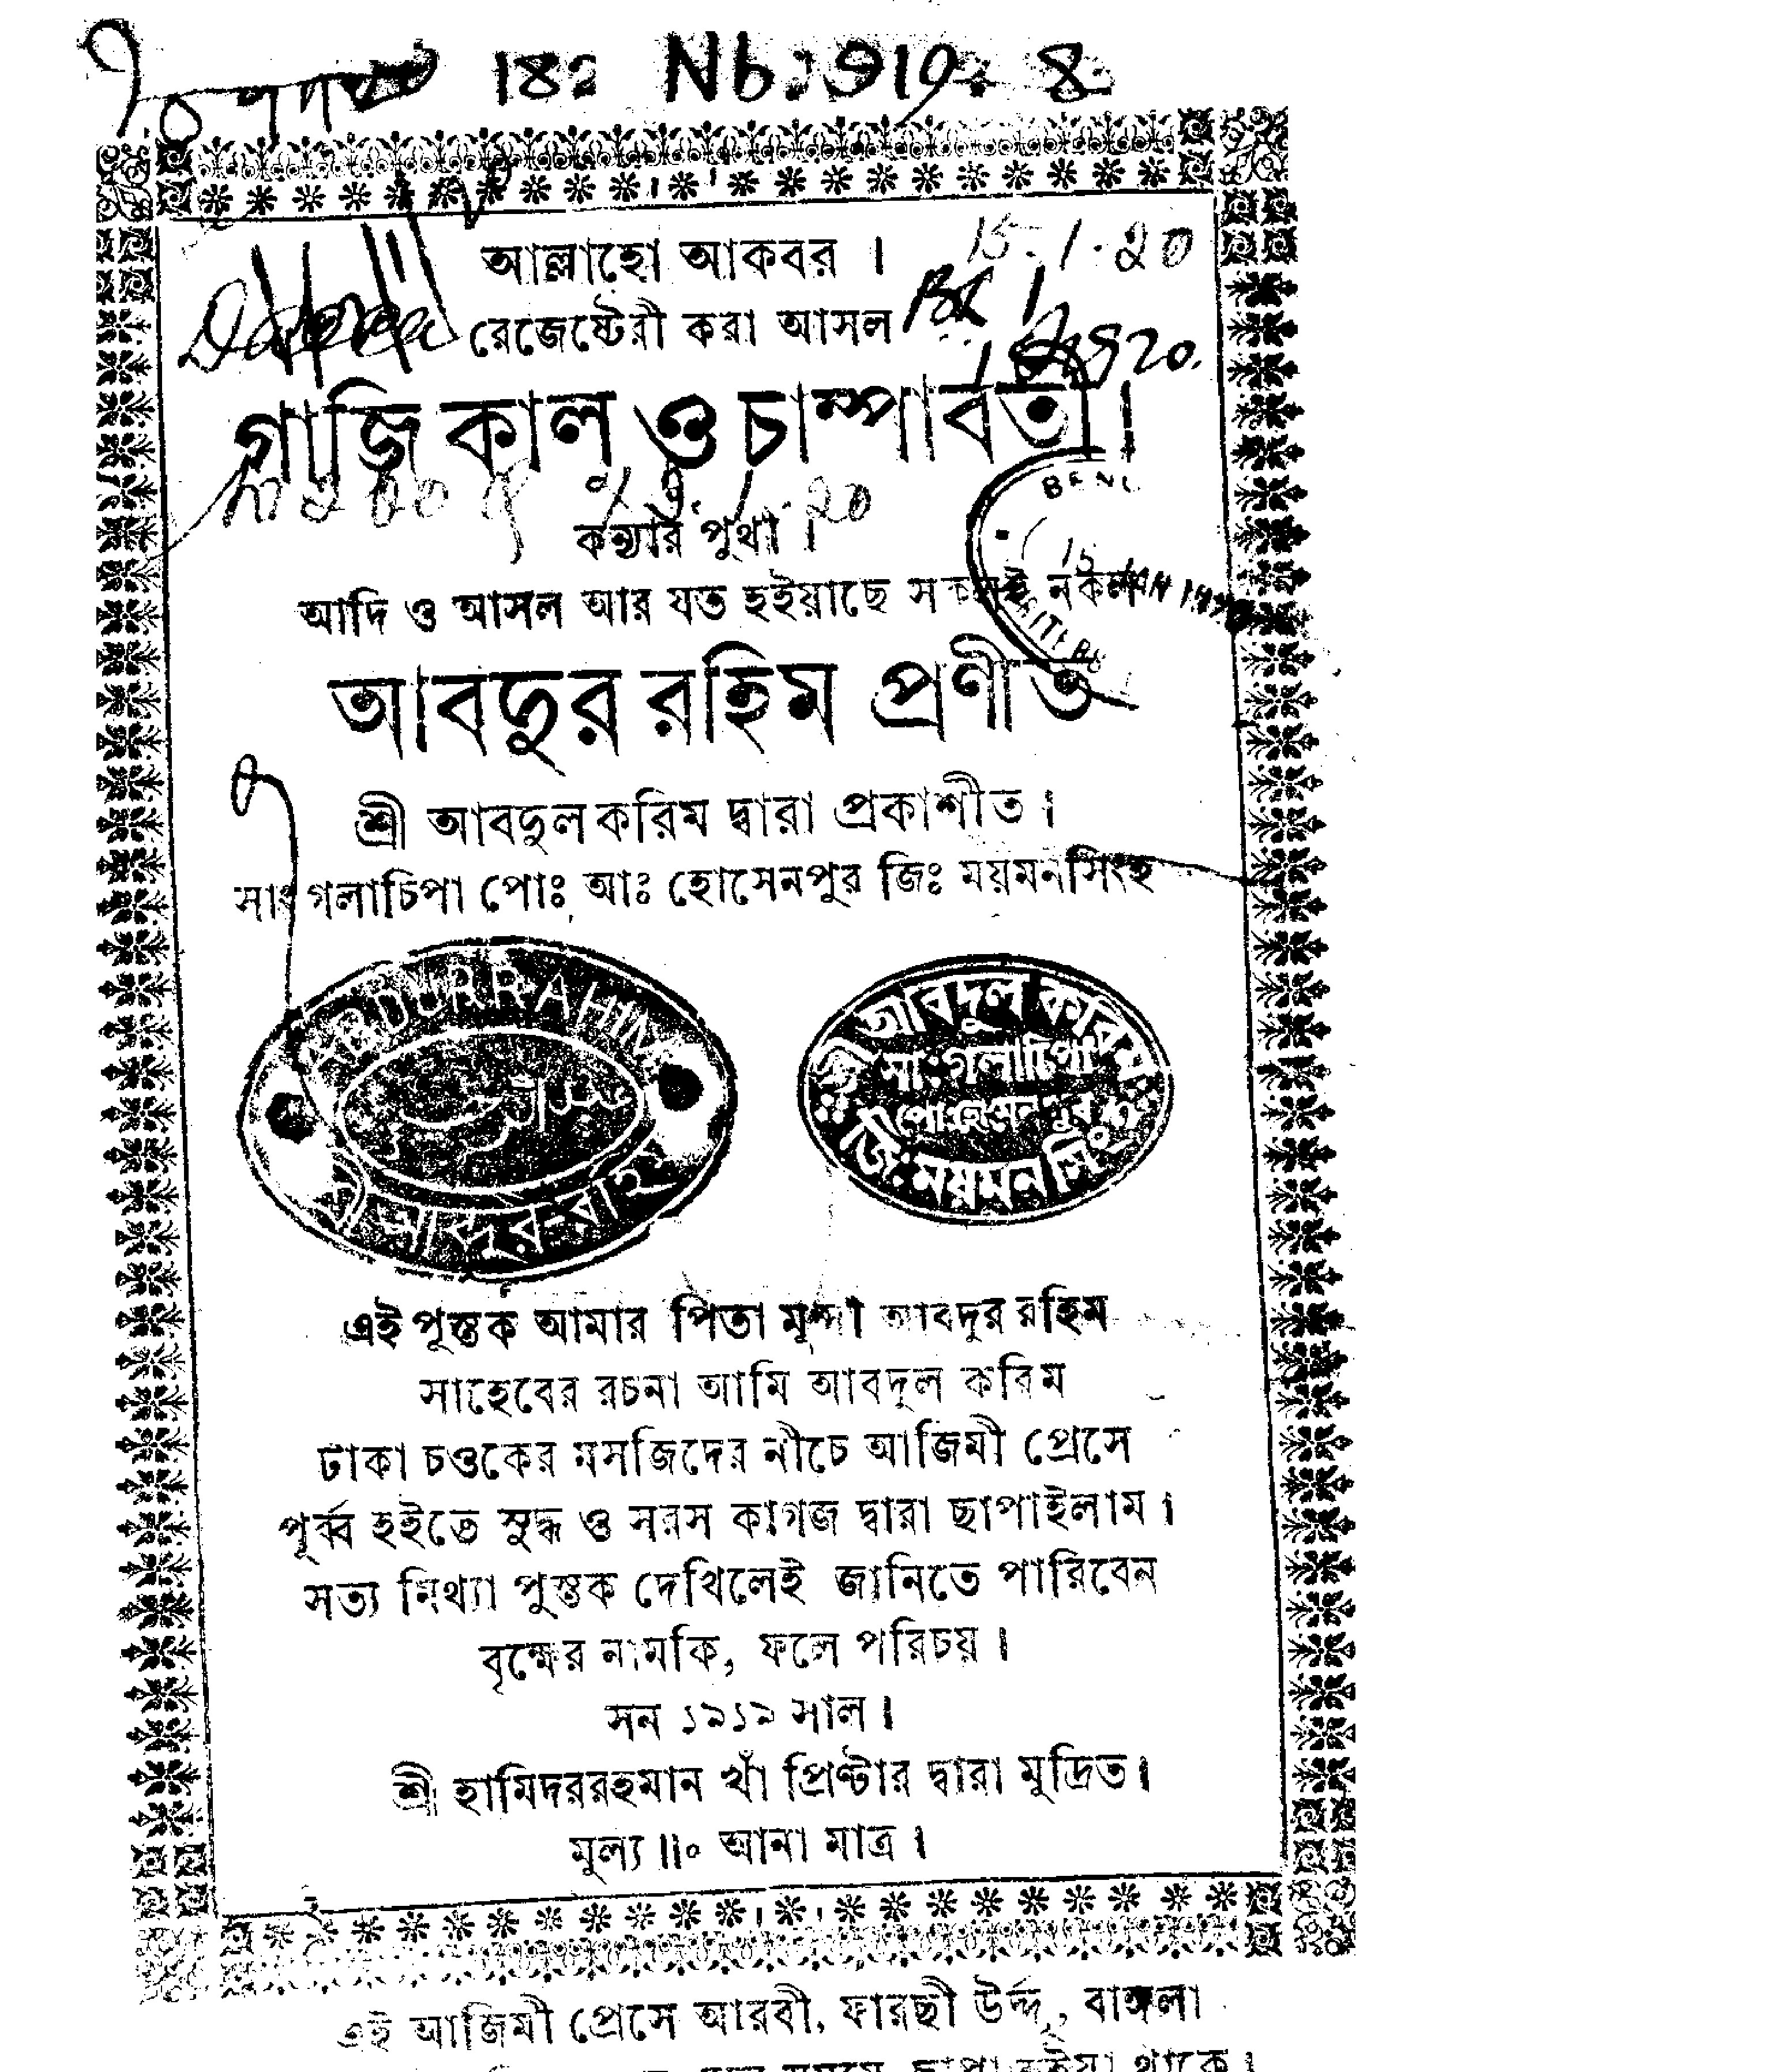 182 No. 919. 8
আল্লাহো আকবর । 15.1.20
রেজেষ্টেরী করা আসল
গাজি কালু ও চাম্পাবতী।
কন্যার পুথী ।
আদি ও আসল আর যত হইয়াছে সকলই নকল
আবদুর রহিম প্রণীত
শ্রী আবদুল করিম দ্বারা প্রকাশীত ।
সাঃ গলাচিপা পোঃ আঃ হোসেনপুর জিঃ ময়মনসিংহ
ABDUR RAHIM
শ্রী আবদুল করিম
সাঃ গলাচিপা
পোঃ হোসেনপুর
জিঃ ময়মনসিং
এই পুস্তক আমার পিতা মুন্সী আবদুর রহিম
সাহেবের রচনা আমি আবদুল করিম
ঢাকা চওকের মসজিদের নীচে আজিমী প্রেসে
পূর্ব্ব হইতে সুদ্ধ ও সরস কাগজ দ্বারা ছাপাইলাম ।
সত্য মিথ্যা পুস্তক দেখিলেই জানিতে পারিবেন
বৃক্ষের নামকি, ফলে পরিচয় ।
সন ১৯১৯ সাল ।
শ্রী হামিদররহমান খাঁ প্রিণ্টার দ্বারা মুদ্রিত।
মুল্য ॥৹ আনা মাত্র ।
এই আজিমী প্রেসে আরবী, ফারছী উর্দ্দু, বাঙ্গলা
ছাপা হইয়া থাকে ।